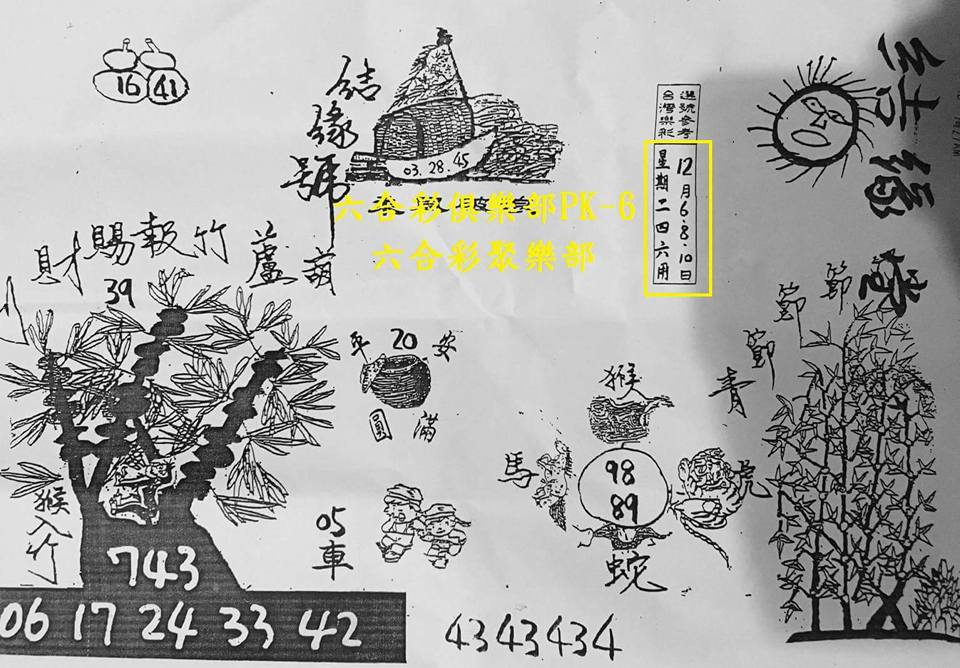 16 41
結緣號
03.28.45
選號參考
台灣樂彩
12月6.8.10日
星期二四六用
六合彩俱樂部PK-6
六合彩聚樂部
財賜報竹蘆葫
39
平 20 安
圓 滿
節節節青
猴
馬
98
89
虎
蛇
猴入竹
05
車
743
06 17 24 33 42
4343434